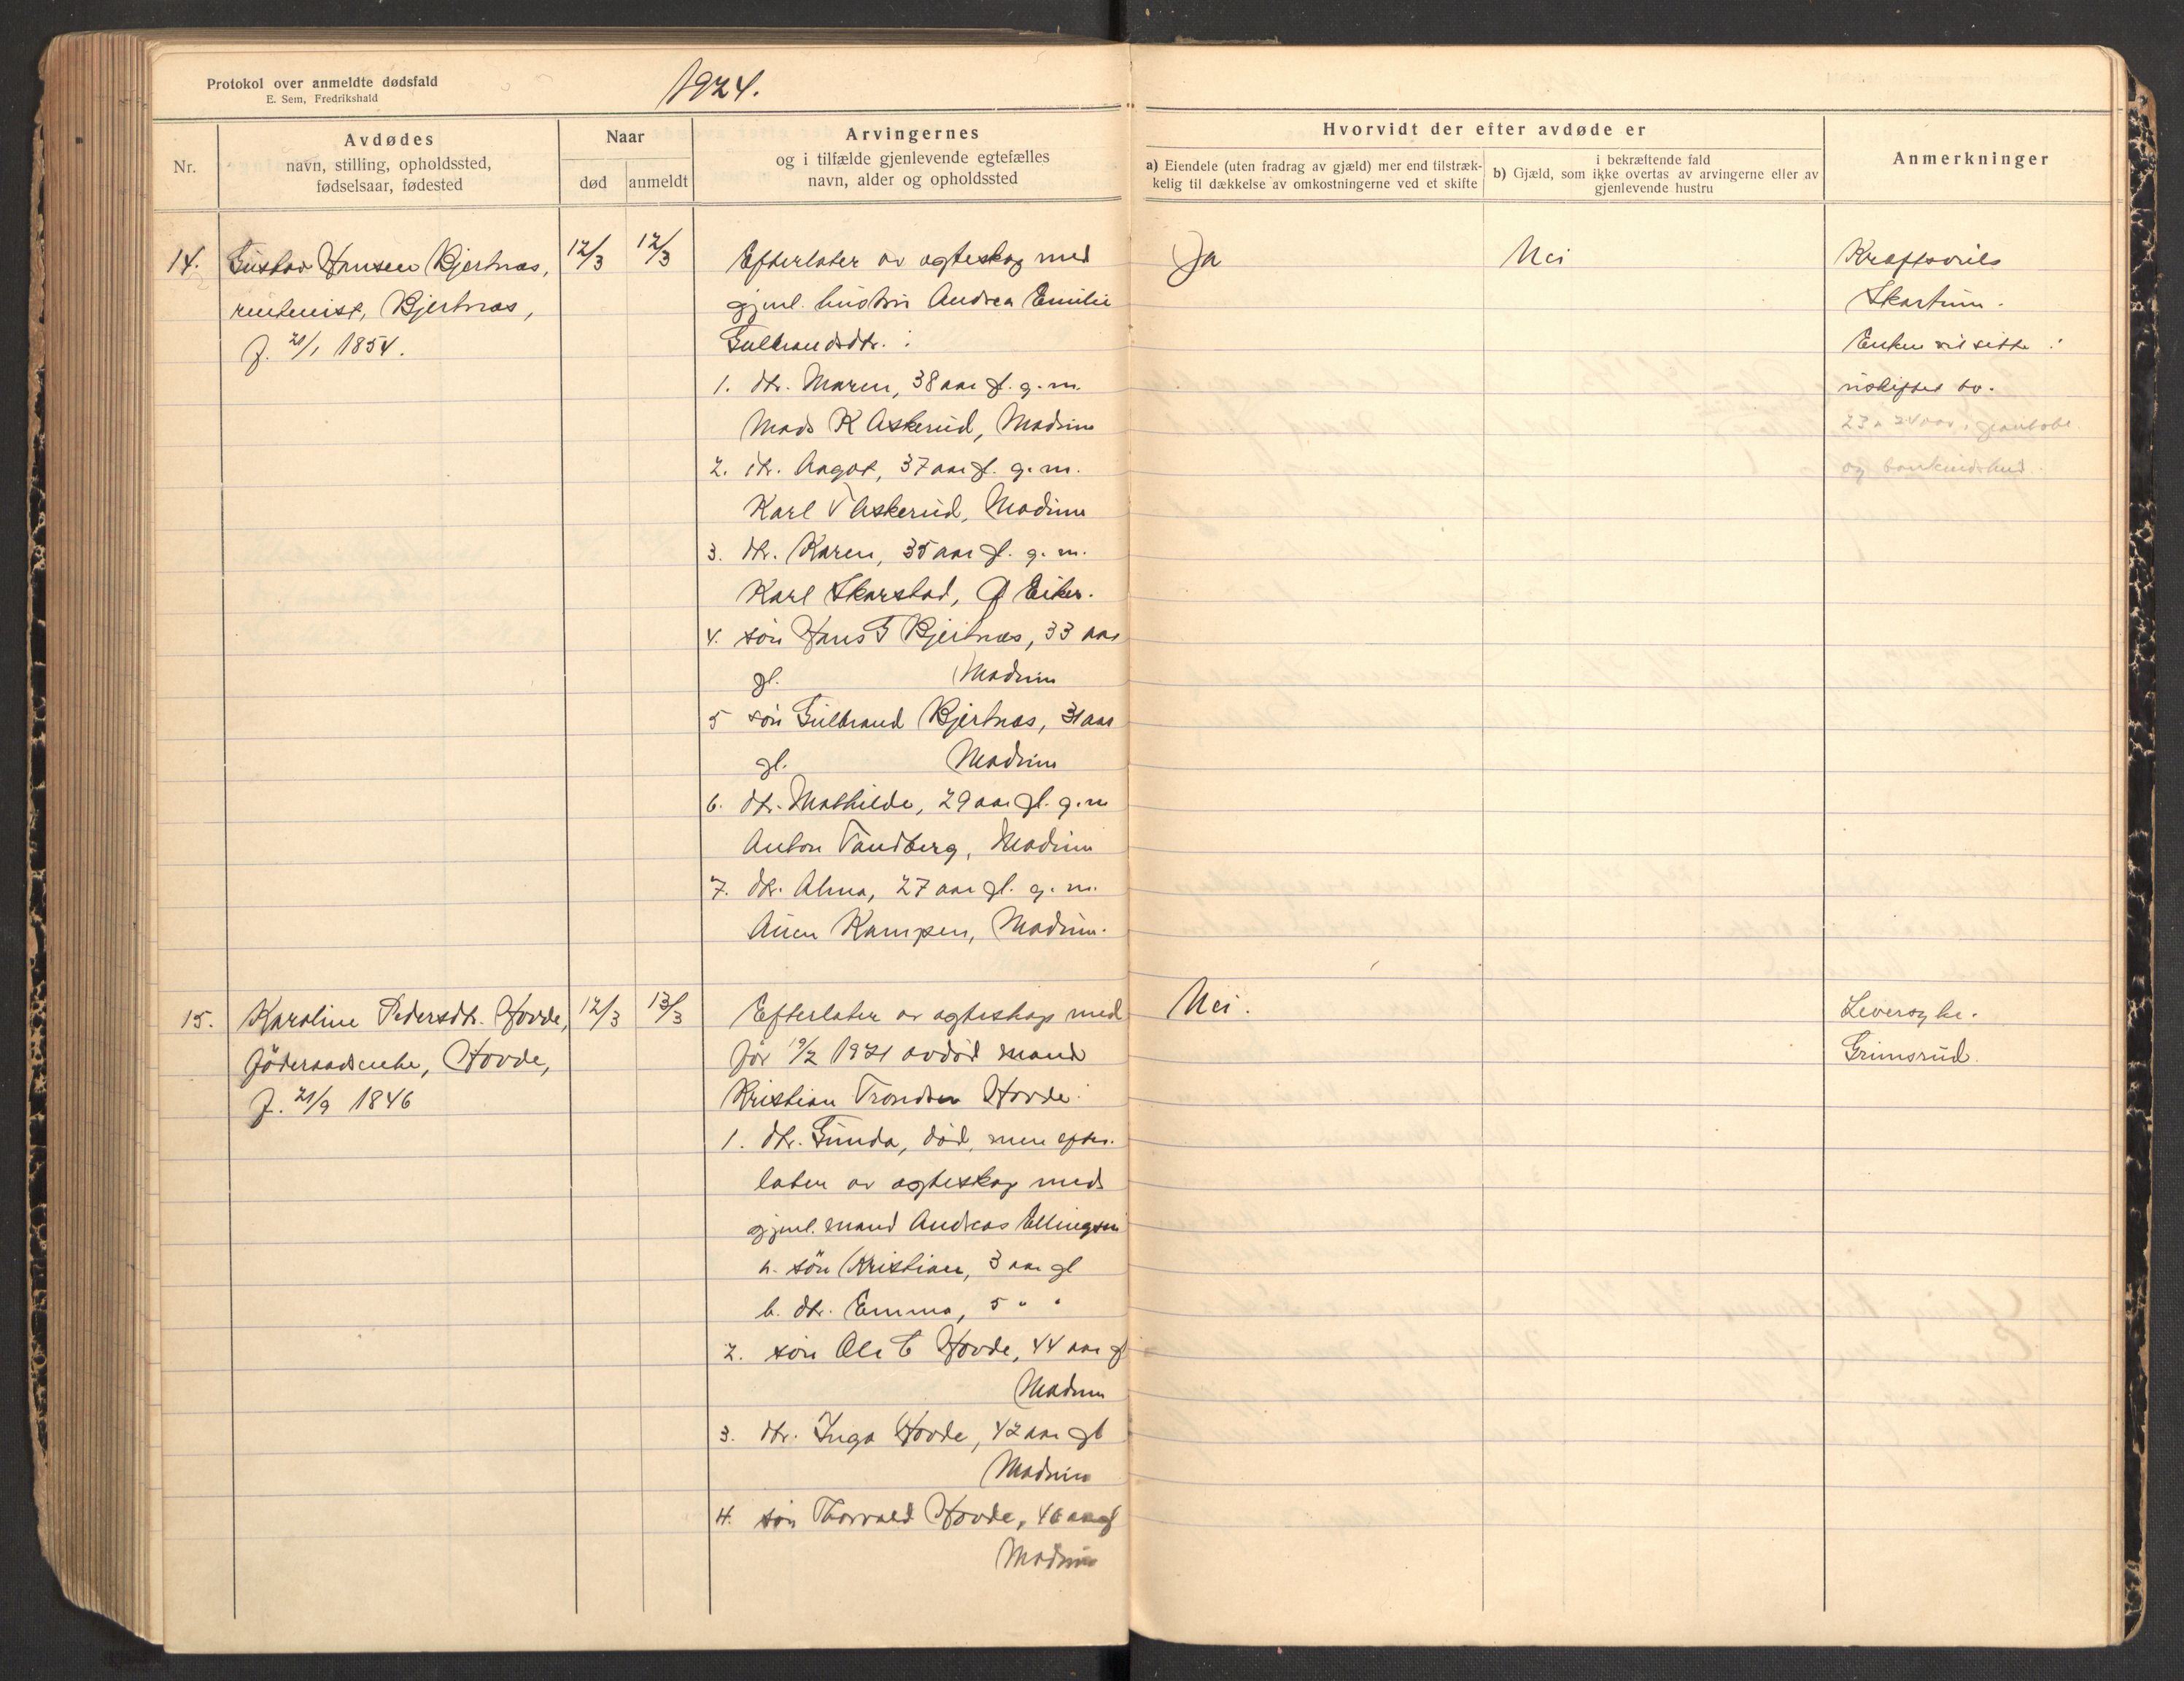 Protokol over anmeldte dødsfald
E. Sem, Fredrikshald
1924.
Nr.
Avdødes
navn, stilling, opholdssted,
fødselsaar, fødested
Naar
død
anmeldt
Arvingernes
og i tilfælde gjenlevende egtefælles
navn, alder og opholdssted
Hvorvidt der efter avdøde er
a) Eiendele (uten fradrag av gjæld) mer end tilstræk-
kelig til dækkelse av omkostningerne ved et skifte
i bekræftende fald
b) Gjæld, som ikke overtas av arvingerne eller av
gjenlevende hustru
Anmerkninger
14.
Gustav Hansen Bjertnæs,
rentenist, Bjertnæs,
f. 21/1 1854.
12/3
12/3
Efterlater av egteskap med
gjenl. hustru Andrea Emilie
Gulbrandsdtr. :
1. dtr. Maren, 38 aar gl. g. m.
Mads K Askerud, Modum
2. dtr. Aagot, 37 aar gl. g. m.
Karl T Askerud, Modum
3. dtr. Karen, 35 aar gl. g. m.
Karl Skarstad, Ø Eiker.
4. søn Hans G Bjertnæs, 33 aar
gl. Modum
5 søn Gulbrand Bjertnæs, 31 aar
gl. Modum
6. dtr. Mathilde, 29 aar gl. g. m
Anton Tandberg, Modum
7. dtr. Alma, 27 aar gl. g. m.
Kampen, Modum.
Ja
Nei
Kræft
Skartum.
Enken vil sitte i
uskiftet bo.
23 a 24 aar i
og bankindskud.
15.
Karoline Pedersdtr. Hovde,
føderaadsenke, Hovde,
f. 21/9 1846
12/3
13/3
Efterlater av egteskap med
før 19/2 1921 avdød mand
Kristian Trondsen Hovde:
1. dtr. Gunda, død, men efter-
later av egteskap med
gjenl. mand Andreas Ellingsen
a. søn Kristian, 3 aar gl
b. dtr. Emma, 5 " "
2. søn Ole C Hovde, 44 aar gl
Modum
3. dtr. Inga Hovde, 42 aar gl
Modum
4. søn Thorvald Hovde, 40 aar gl
Modum
Nei.
Leversyke.
Grimsrud.